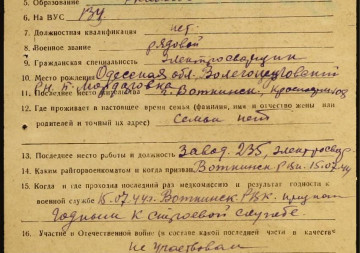 5. Образование
6. На ВУС ВУ
7. Должностная квалификация нет
8. Военное звание рядовой
9. Гражданская специальность Электросварщик
10. Место рождения Одесская обл.
РН.
11. Последнее место г. Воткинск
12. Где проживает в настоящее время семья (фамилия, имя и отчество жены или
родителей и точный их адрес) Семьи нет
13. Последнее место работы и должность Завод 235, электросвар
14. Каким райгорвоенкоматом и когда призван Воткинск РВК. 15.07.44
15. Когда и где проходил последний раз медкомиссию и результат годности к
военной службе 15.07.44г. Воткинск РВК. признан
годным к строевой службе
16. Участие в Отечественной войне (в составе какой последней части в качестве
Не участвовал